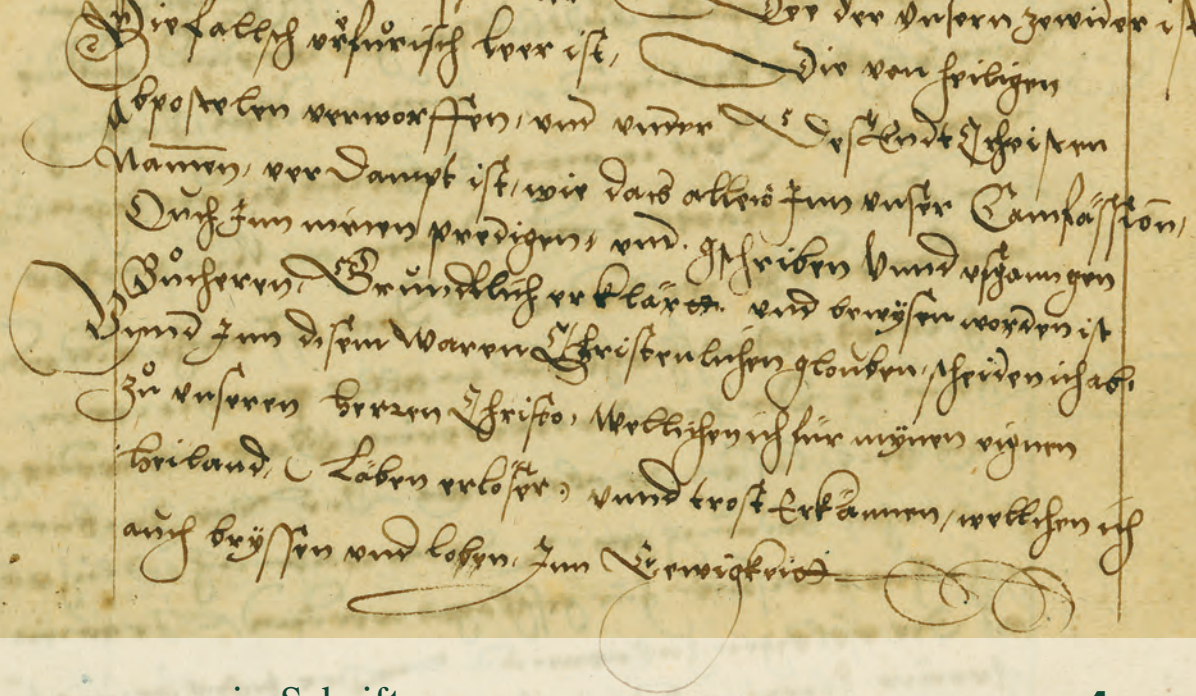 Leer der unsern zewider ist
Die fallsch verfürisch leer ist, Die von heiligen
Abpostelen verworffen, und under Des Endt Christen
Namen, verdampt ist, wie das alles Inn unser Camfässion,
Ouch Inn minen predigen, und gschriben Unnd ußganngen
Büecheren, Gründtlich erklärtt und bewysen worden ist
Unnd Inn disem Waren Christenlichen glouben, scheiden ich ab,
Zů unseren herren Christo, Wellichen ich für mynen eignen
heiland, Läben erlöser, unnd trost Erkännen, wellchen ich
auch bryssen und loben, Inn Eewigkeitt